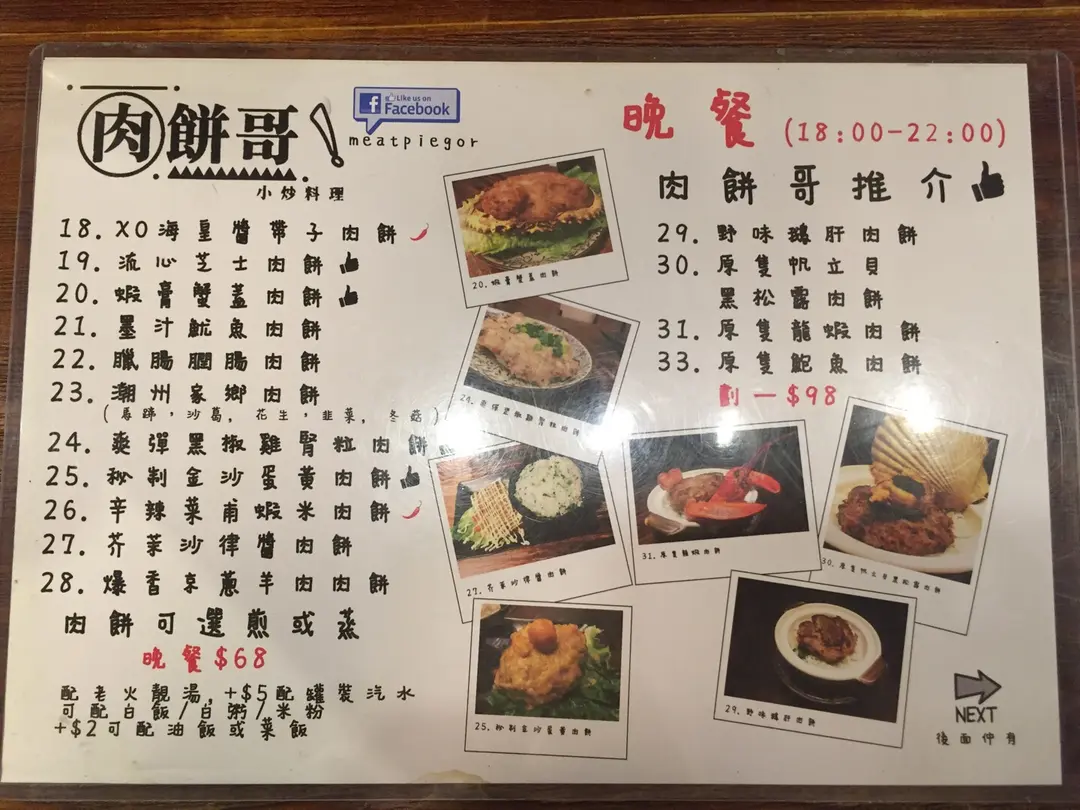 肉餅哥!
Like us on
Facebook
meatpiegor
小炒料理
18. XO海皇醬帶子肉餅
19. 流心芝士肉餅
20. 蝦膏蟹蓋肉餅
21. 墨汁魷魚肉餅
22. 臘腸膶腸肉餅
23. 潮州家鄉肉餅
(馬蹄,沙葛,花生,韭菜,冬菇)
24. 爽彈黑椒雞腎粒肉餅
25. 秘制金沙蛋黃肉餅
26. 辛辣菜甫蝦米肉餅
27. 芥茉沙律醬肉餅
28. 爆香京蔥羊肉肉餅
肉餅可選煎或蒸
晚餐$68
配老火靚湯,+$5配罐裝汽水
可配白飯/白粥/米粉
+$2可配油飯或菜飯
晚餐 (18:00-22:00)
肉餅哥推介
29. 野味鵝肝肉餅
30. 原隻帆立貝
黑松露肉餅
31. 原隻龍蝦肉餅
33. 原隻鮑魚肉餅
劃一$98
20. 蝦膏蟹蓋肉餅
24. 爽彈黑椒雞腎粒肉餅
27. 芥茉沙律醬肉餅
31. 原隻龍蝦肉餅
30. 原隻帆立貝黑松露肉餅
25. 秘制金沙蛋黃肉餅
29. 野味鵝肝肉餅
NEXT
後面仲有